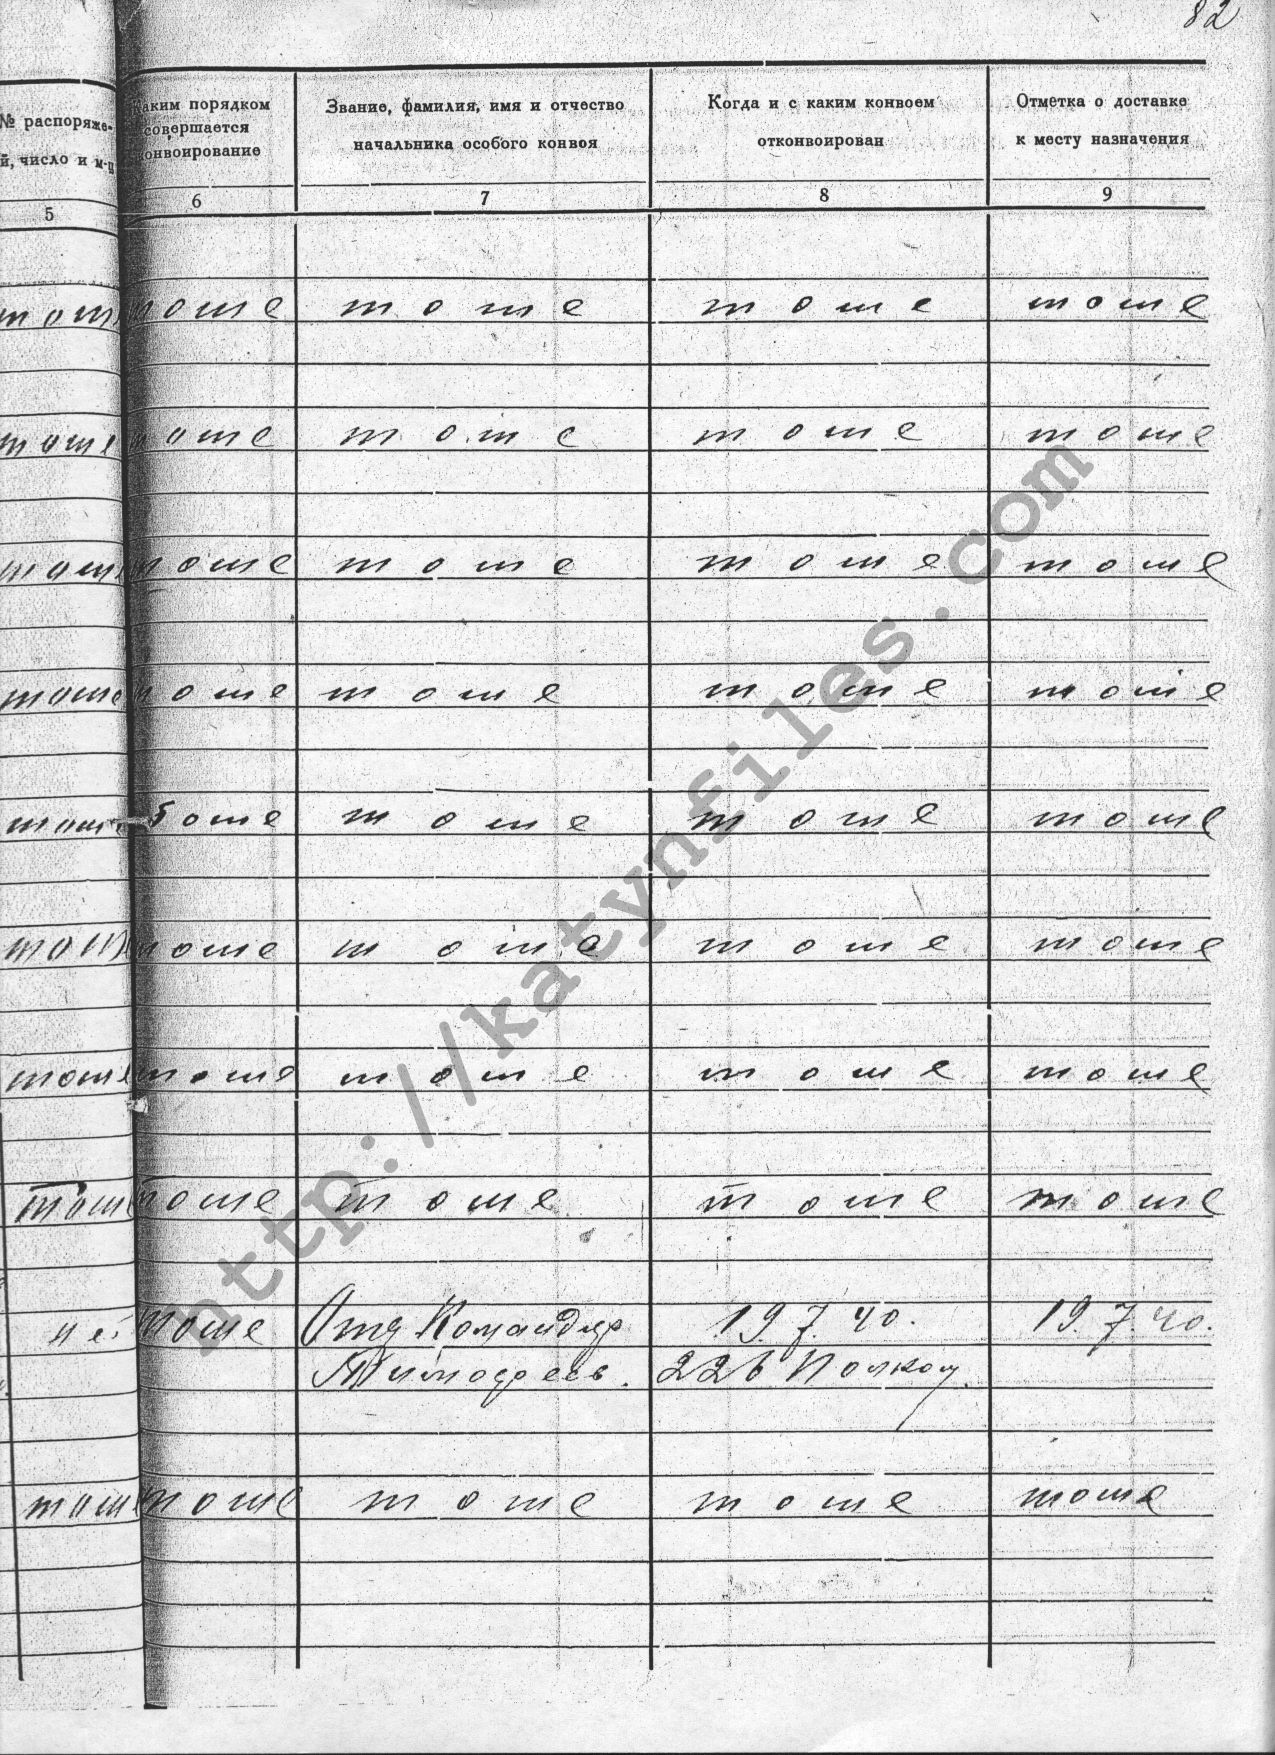 82
№ распоряже-
й, число и м-ц
5
Каким порядком
совершается
конвоирование
6
Звание, фамилия, имя и отчество
начальника особого конвоя
7
Когда и с каким конвоем
отконвоирован
8
Отметка о доставке
к месту назначения
9
тоже тоже тоже тоже
тоже тоже тоже тоже
тоже тоже тоже тоже
тоже тоже тоже тоже
тоже тоже тоже тоже
тоже тоже тоже тоже
тоже тоже тоже тоже тоже
тоже тоже тоже тоже
тоже Отд Командир 19.7.40. 19.7.40.
Тимофеев. 226 Полком.
тоже тоже тоже тоже
http://katynfiles.com